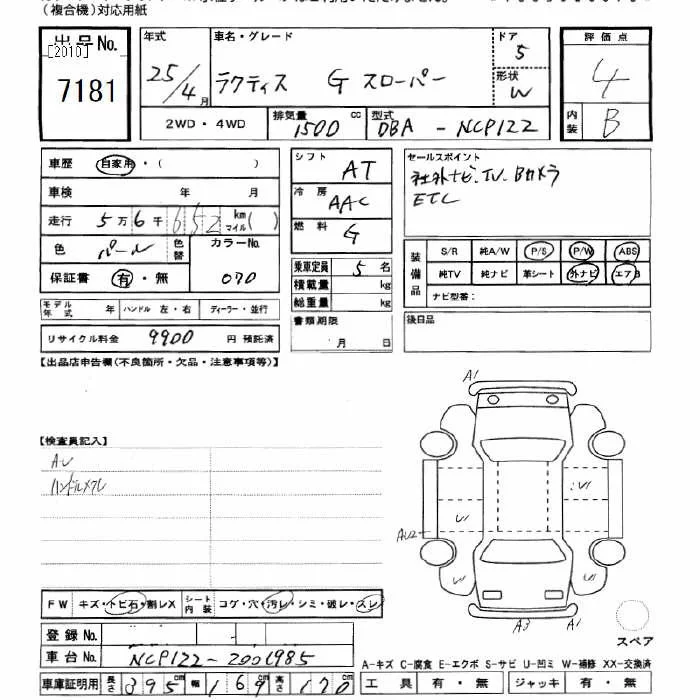 (複合機)対応用紙
出品No.
[2010]
7181
年式 25/4月
車名・グレード ラクティス G スローパー
ドア 5
形状 W
評価点 4
内装 B
2WD・4WD
排気量 1500 cc
型式 DBA - NCP122
車歴 自家用・( )
車検 年 月
走行 5万6千652 km マイル( )
色 パール 色替
カラーNo. 070
保証書 有・無
モデル年式 年 ハンドル 左・右 ディーラー・並行
リサイクル料金 9900 円 預託済
シフト AT
冷房 AAC
燃料 G
乗車定員 5名
積載量 kg
総重量 kg
書類期限
月 日
セールスポイント
社外ナビ、TV、Bカメラ
ETC
装備品
S/R 純A/W P/S P/W ABS
純TV 純ナビ 革シート 外ナビ エアB
ナビ型番:
後日品
【出品店申告欄(不良箇所・欠品・注意事項等)】
【検査員記入】
AU
ハンドルスレ
A1
U1
U1
AU2
U1
U1
A3 A1
スペア
FW キズ・トビ石・割レX シート内装 コゲ・穴・汚レ・シミ・破レ・スレ
登録No.
車台No. NCP122-2001985
車庫証明用 長さ 395 幅 169 高さ 170
A-キズ C-腐食 E-エクボ S-サビ U-凹ミ W-補修 XX-交換済
工具 有・無 ジャッキ 有・無